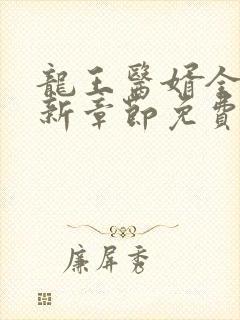 龍王醫婿全
新章節免費
廉屏秀